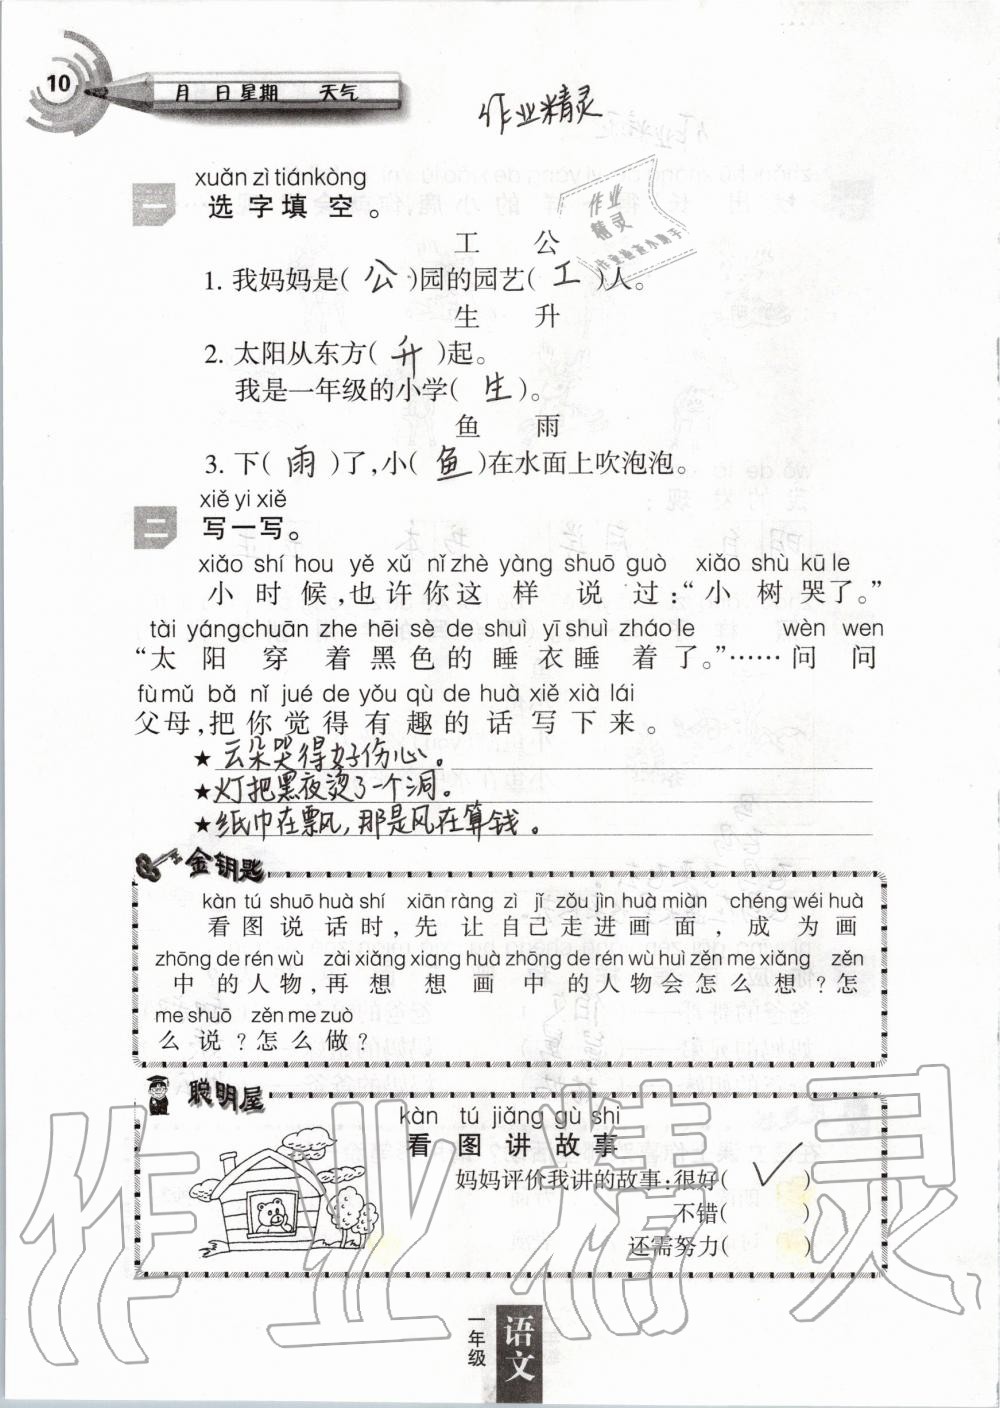 10
月 日 星期 天气
作业精灵
作业
精灵
xuǎn zì tiánkòng
一 选字填空。
工 公
1. 我妈妈是( 公 )园的园艺( 工 )人。
生 升
2. 太阳从东方( 升 )起。
我是一年级的小学( 生 )。
鱼 雨
3. 下( 雨 )了,小( 鱼 )在水面上吹泡泡。
xiě yi xiě
二 写一写。
xiǎo shí hou yě xǔ nǐ zhè yàng shuō guò xiǎo shù kū le
小时候,也许你这样说过:“小树哭了。”
tài yángchuān zhe hēi sè de shuì yī shuì zháo le wèn wen
“太阳穿着黑色的睡衣睡着了。”……问问
fù mǔ bǎ nǐ jué de yǒu qù de huà xiě xià lái
父母,把你觉得有趣的话写下来。
★云朵哭得好伤心。
★灯把黑夜烫了一个洞。
★纸巾在飘,那是风在算钱。
金钥匙
kàn tú shuō huà shí xiān ràng zì jǐ zǒu jìn huà miàn chéng wéi huà
看图说话时,先让自己走进画面,成为画
zhōng de rén wù zài xiǎng xiang huà zhōng de rén wù huì zěn me xiǎng zěn
中的人物,再想想画中的人物会怎么想?怎
me shuō zěn me zuò
么说?怎么做?
聪明屋
kàn tú jiǎng gù shi
看图讲故事
妈妈评价我讲的故事:很好( ✓ )
不错( )
还需努力( )
作业精灵
一年级 语文